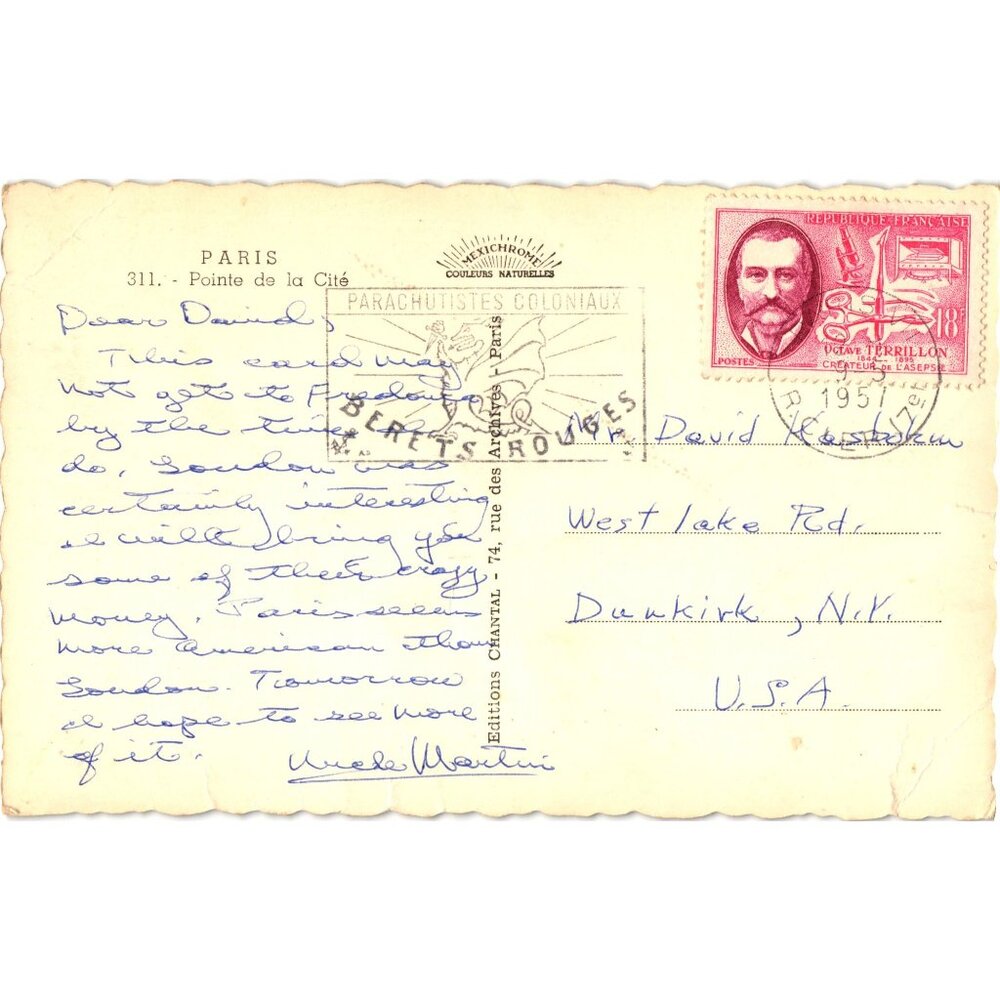 PARIS
311. - Pointe de la Cité
MEXICHROME
COULEURS NATURELLES
PARACHUTISTES COLONIAUX
BERETS ROUGES
REPUBLIQUE FRANÇAISE
18F
OCTAVE TERRILLON
1844 1895
CREATEUR DE L'ASEPSIE
POSTES
1957
Dear David,
This card may
not get to Fredonia
by the time I
do. London was
certainly interesting
I will bring you
some of their crazy
money. Paris seems
more American than
London. Tomorrow
I hope to see more
of it.
Uncle Martin
Editions CHANTAL - 74, rue des Archives - Paris
Mr. David
West lake Rd.
Dunkirk, N.Y.
U.S.A.